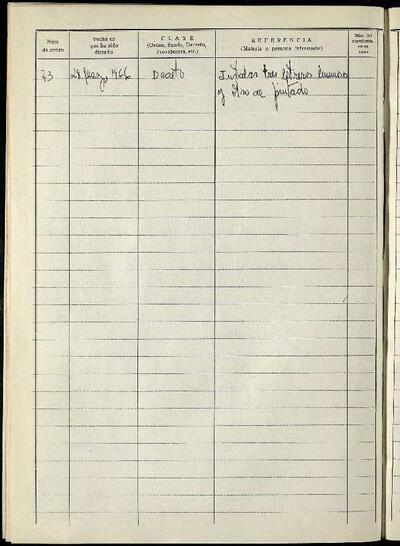 Núm. de orden
Fecha en que ha sido dictado
CLASE
(Orden, Bando, Decreto, Providencia, etc.)
REFERENCIA
(Materia o persona interesada)
Núm. del expediente
33 28 1966 Decreto Instalar tres letreros luminosos
y otro de pintado